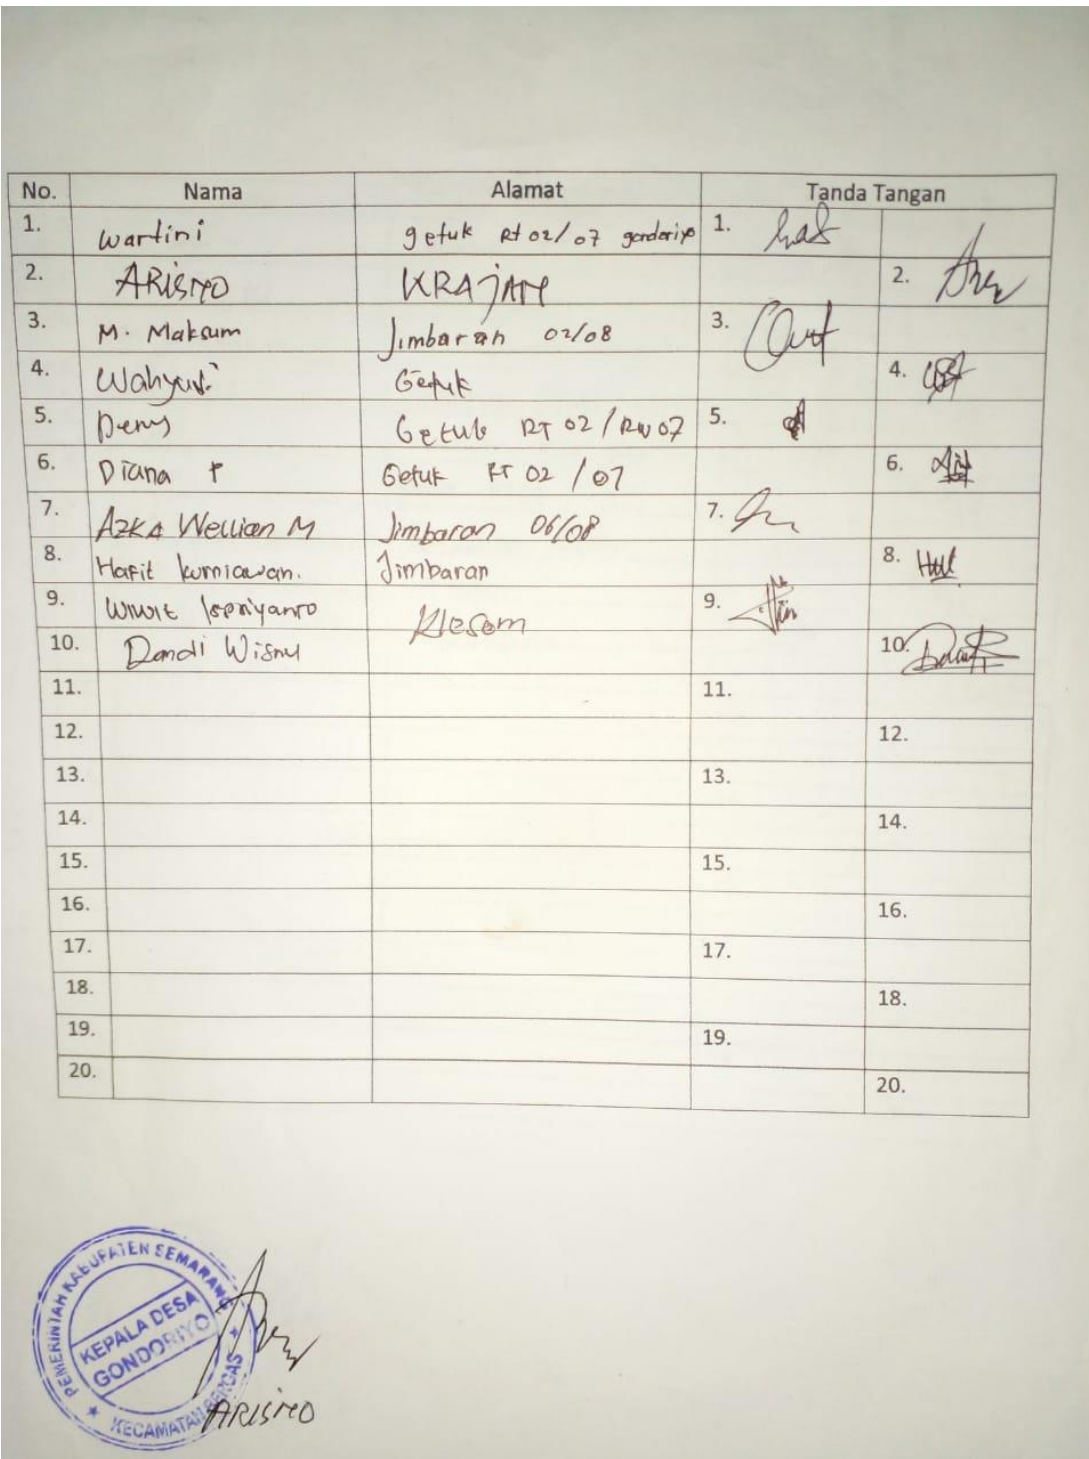 No. Nama Alamat Tanda Tangan
1. Wartini getuk Rt 02/07 gondoriyo 1.
2. ARISNO KRAJAN 2.
3. M. Maksum Jimbaran 02/08 3.
4. Wahyudi Getuk 4.
5. Deny Getuk RT 02/RW 07 5.
6. Diana P Getuk RT 02/07 6.
7. AZKA Wellian M Jimbaran 06/08 7.
8. Hafit kurniawan. Jimbaran 8.
9. Wiwit Klesem 9.
10. Dandi Wisnu 10.
11. 11.
12. 12.
13. 13.
14. 14.
15. 15.
16. 16.
17. 17.
18. 18.
19. 19.
20. 20.
PEMERINTAH KABUPATEN SEMARANG
KEPALA DESA
GONDORIYO
KECAMATAN BERGAS
ARISNO